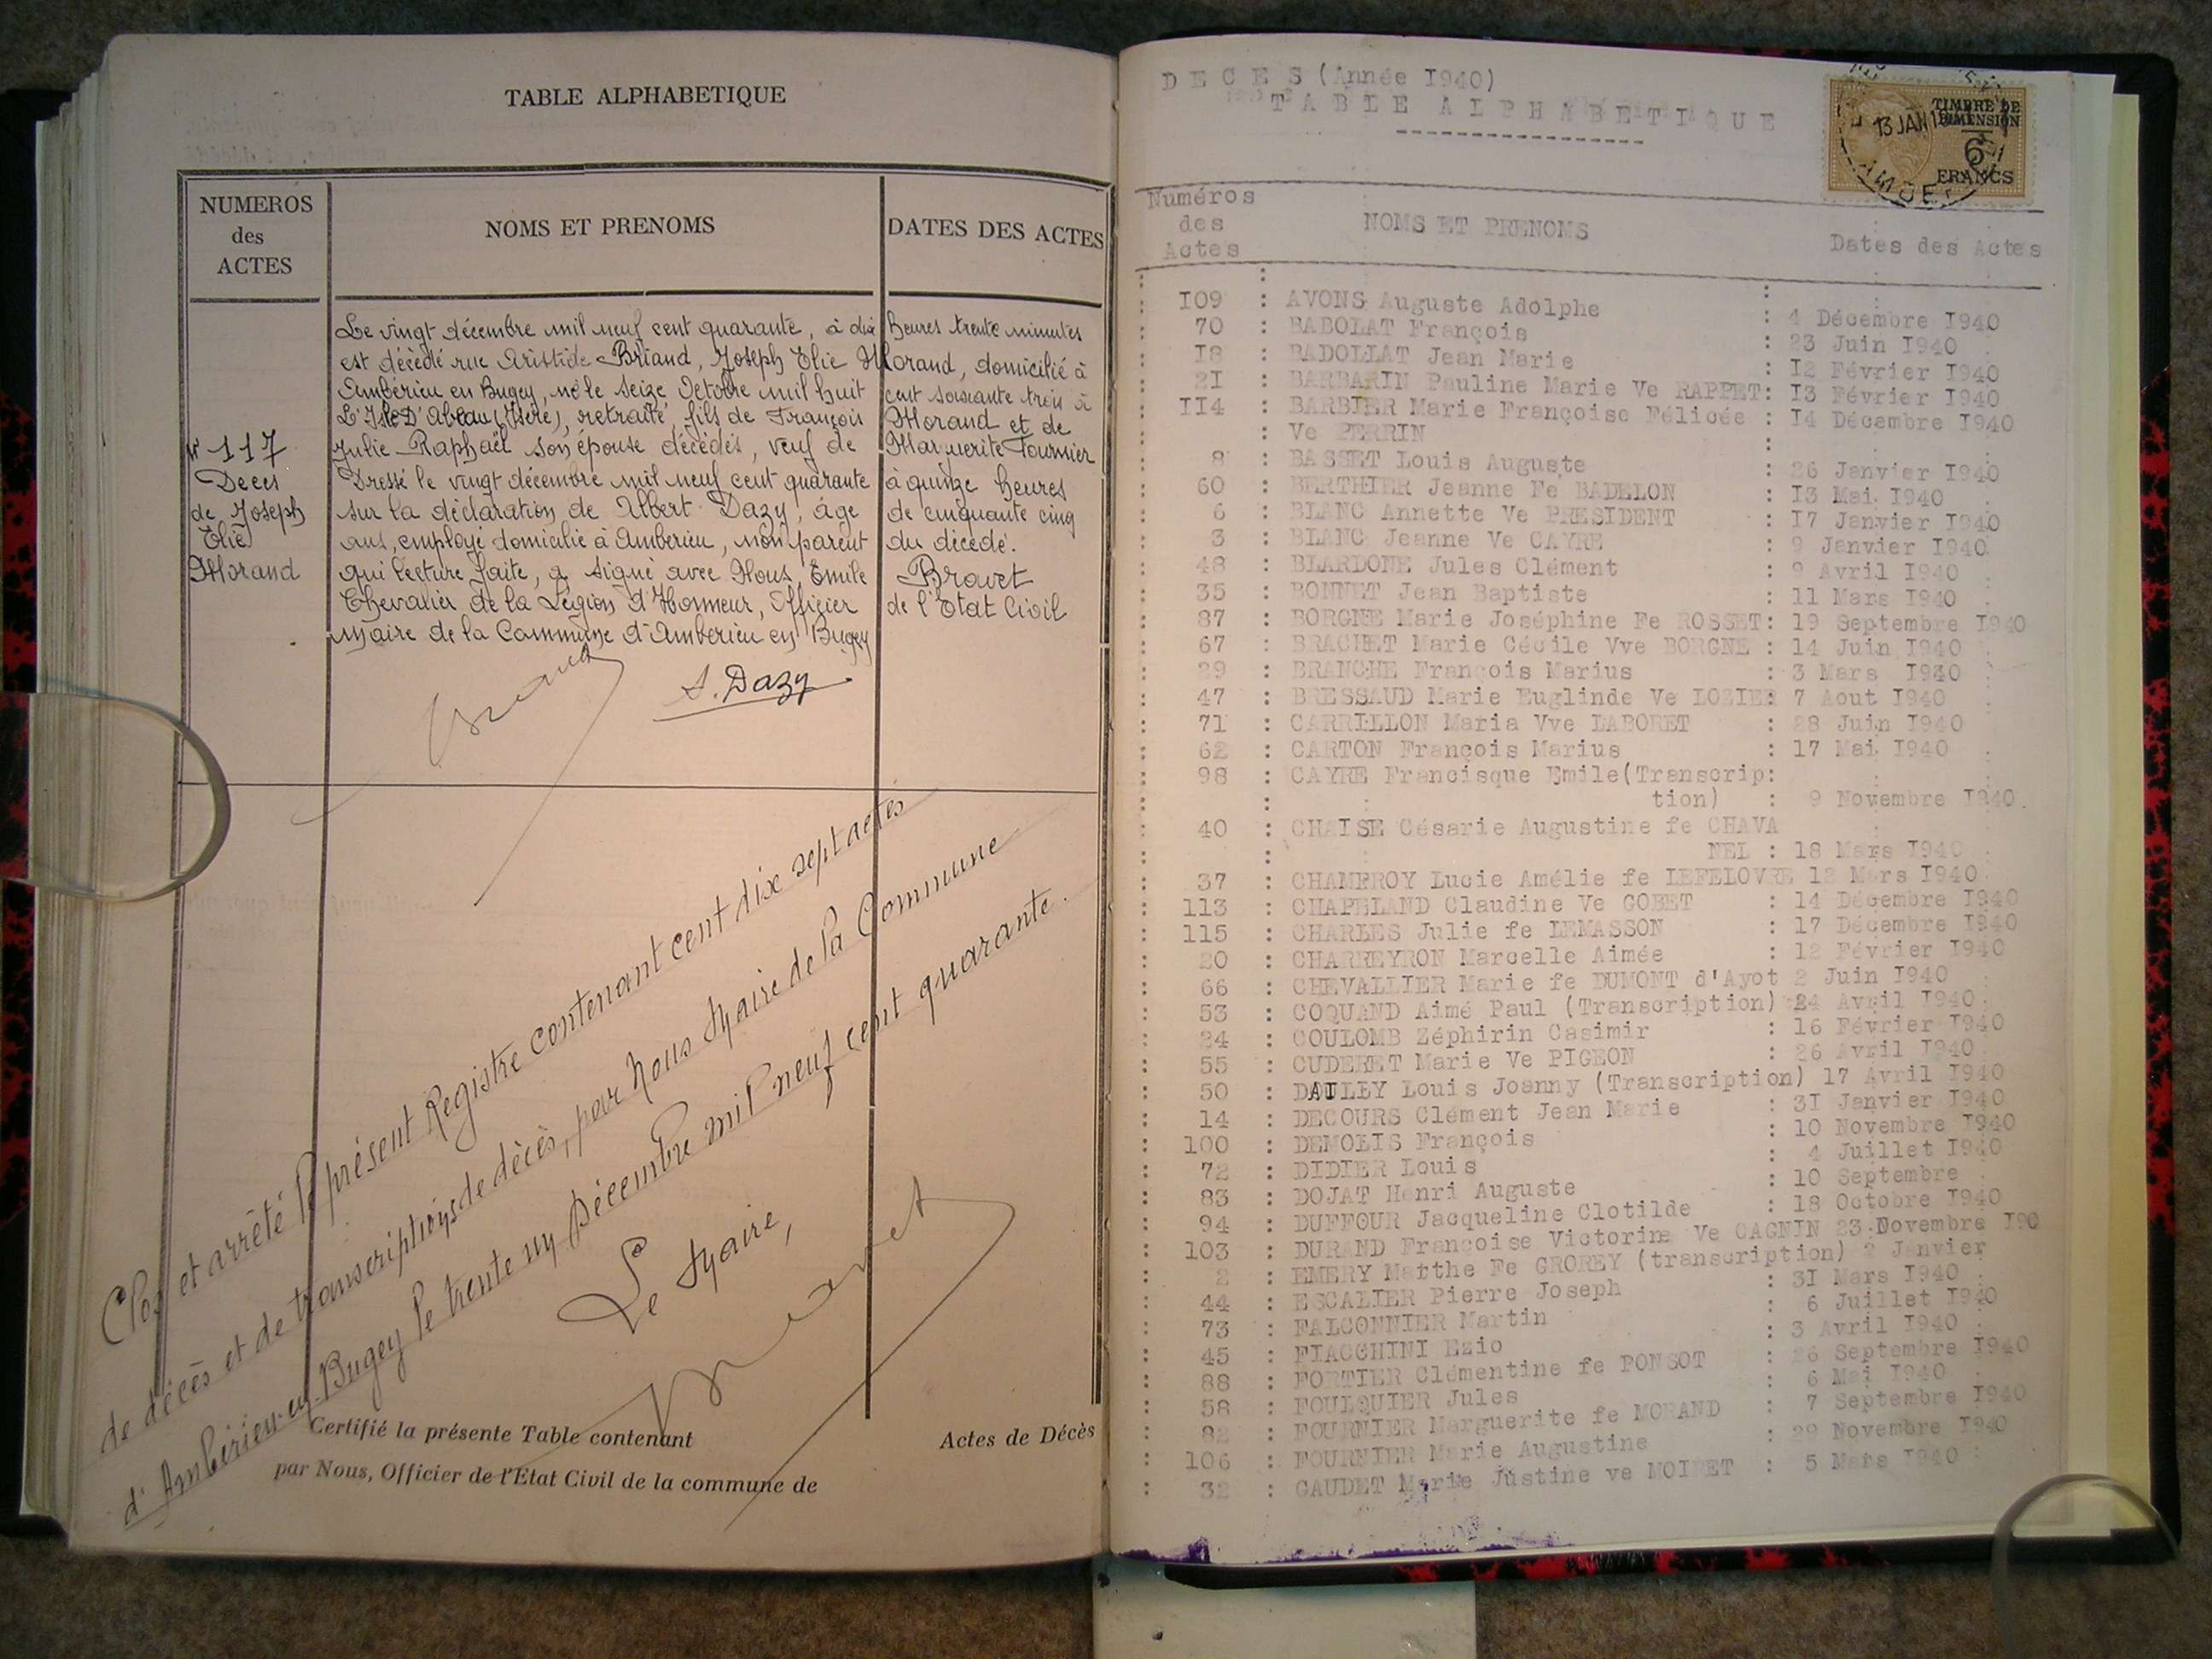 TABLE ALPHABETIQUE
NUMEROS
des
ACTES
NOMS ET PRENOMS
DATES DES ACTES
Le vingt décembre mil neuf cent quarante, à dix heures trente minutes
est décédé rue Aristide Briand, Joseph Elie Morand, domicilié à
Ambérieu en Bugey, né le seize Octobre mil huit cent soixante trois à
L'Isle D'Abeau (Isère), retraité, fils de François Morand et de
Julie Raphaël son épouse décédés, veuf de Marguerite Fournier
Dressé le vingt décembre mil neuf cent quarante à quinze heures
sur la déclaration de Albert Dazy, âgé de cinquante cinq
ans, employé domicilié à Ambérieu, non parent du décédé.
qui lecture faite, a signé avec Nous, Emile Bravet
Chevalier de la Légion d'Honneur, Officier de l'Etat Civil
Maire de la Commune d'Amberieu en Bugey
N° 117
Décès
de Joseph
Elie
Morand
A. Dazy
Clos et arrêté le présent Registre contenant cent dix sept actes
de décès et de transcriptions de décès, par Nous Maire de la Commune
d'Ambérieu-en-Bugey le trente un Décembre mil neuf cent quarante.
Le Maire,
Bravet
Certifié la présente Table contenant Actes de Décès
par Nous, Officier de l'Etat Civil de la commune de
DECES (Année I940)
TABLE ALPHABETIQUE
TIMBRE DE
DIMENSION
13 JAN
6
FRANCS
Numéros
des
Actes
NOMS ET PRENOMS
Dates des Actes
I09 : AVONS Auguste Adolphe : 4 Décembre I940
70 : BABOLAT François : 23 Juin I940
I8 : BADOLLAT Jean Marie : I2 Février I940
2I : BARBARIN Pauline Marie Ve RAPPET: I3 Février I940
II4 : BARBIER Marie Françoise Félicée : I4 Décembre I940
: Ve PERRIN :
8 : BASSET Louis Auguste : 26 Janvier I940
60 : BERTHIER Jeanne Fe BADELON : I3 Mai I940
6 : BLANC Annette Ve PRESIDENT : I7 Janvier I940
3 : BLANC Jeanne Ve CAYRE : 9 Janvier I940
48 : BLARDONE Jules Clément : 9 Avril I940
35 : BONNET Jean Baptiste : 11 Mars I940
87 : BORGNE Marie Joséphine Fe ROSSET: 19 Septembre I940
67 : BRACHET Marie Cécile Vve BORGNE : 14 Juin I940
29 : BRANCHE François Marius : 3 Mars I940
47 : BRESSAUD Marie Euglinde Ve LOZIER 7 Aout I940
71 : CARRILLON Maria Vve LABORET : 28 Juin I940
62 : CARTON François Marius : 17 Mai I940
98 : CAYRE Francisque Emile(Transcrip:
tion) : 9 Novembre I940.
40 : CHAISE Césarie Augustine fe CHAVA
NEL : 18 Mars I940
37 : CHAMEROY Lucie Amélie fe LEFELOVRE 12 Mars I940
113 : CHAPELAND Claudine Ve GOBET : 14 Décembre I940
115 : CHARLES Julie fe LEMASSON : 17 Décembre I940
20 : CHARREYRON Marcelle Aimée : 12 Février I940
66 : CHEVALLIER Marie fe DUMONT d'Ayot 2 Juin I940
53 : COQUAND Aimé Paul (Transcription) 24 Avril I940
24 : COULOMB Zéphirin Casimir : 16 Février I940
55 : CUDERET Marie Ve PIGEON : 26 Avril I940
50 : DAULLY Louis Joanny (Transcription) 17 Avril I940
14 : DECOURS Clément Jean Marie : 3I Janvier I940
100 : DEMOLIS François : 10 Novembre I940
72 : DIDIER Louis : 4 Juillet I940
83 : DOJAT Henri Auguste : 10 Septembre
94 : DUFFOUR Jacqueline Clotilde : 18 Octobre I940
103 : DURAND Françoise Victorine Ve CAGNIN 23.Novembre I90
2 : EMERY Marthe Fe GROREY (transcription) 2 Janvier
44 : ESCALIER Pierre Joseph : 3I Mars I940
73 : FALCONNIER Martin : 6 Juillet I940
45 : FIACCHINI Ezio : 3 Avril I940
88 : FORTIER Clémentine fe PONSOT : 26 Septembre I940
58 : FOULQUIER Jules : 6 Mai I940
82 : FOURNIER Marguerite fe MORAND : 7 Septembre I940
106 : FOURNIER Marie Augustine : 29 Novembre I940
32 : GAUDET Marie Justine ve NOIRET : 5 Mars I940